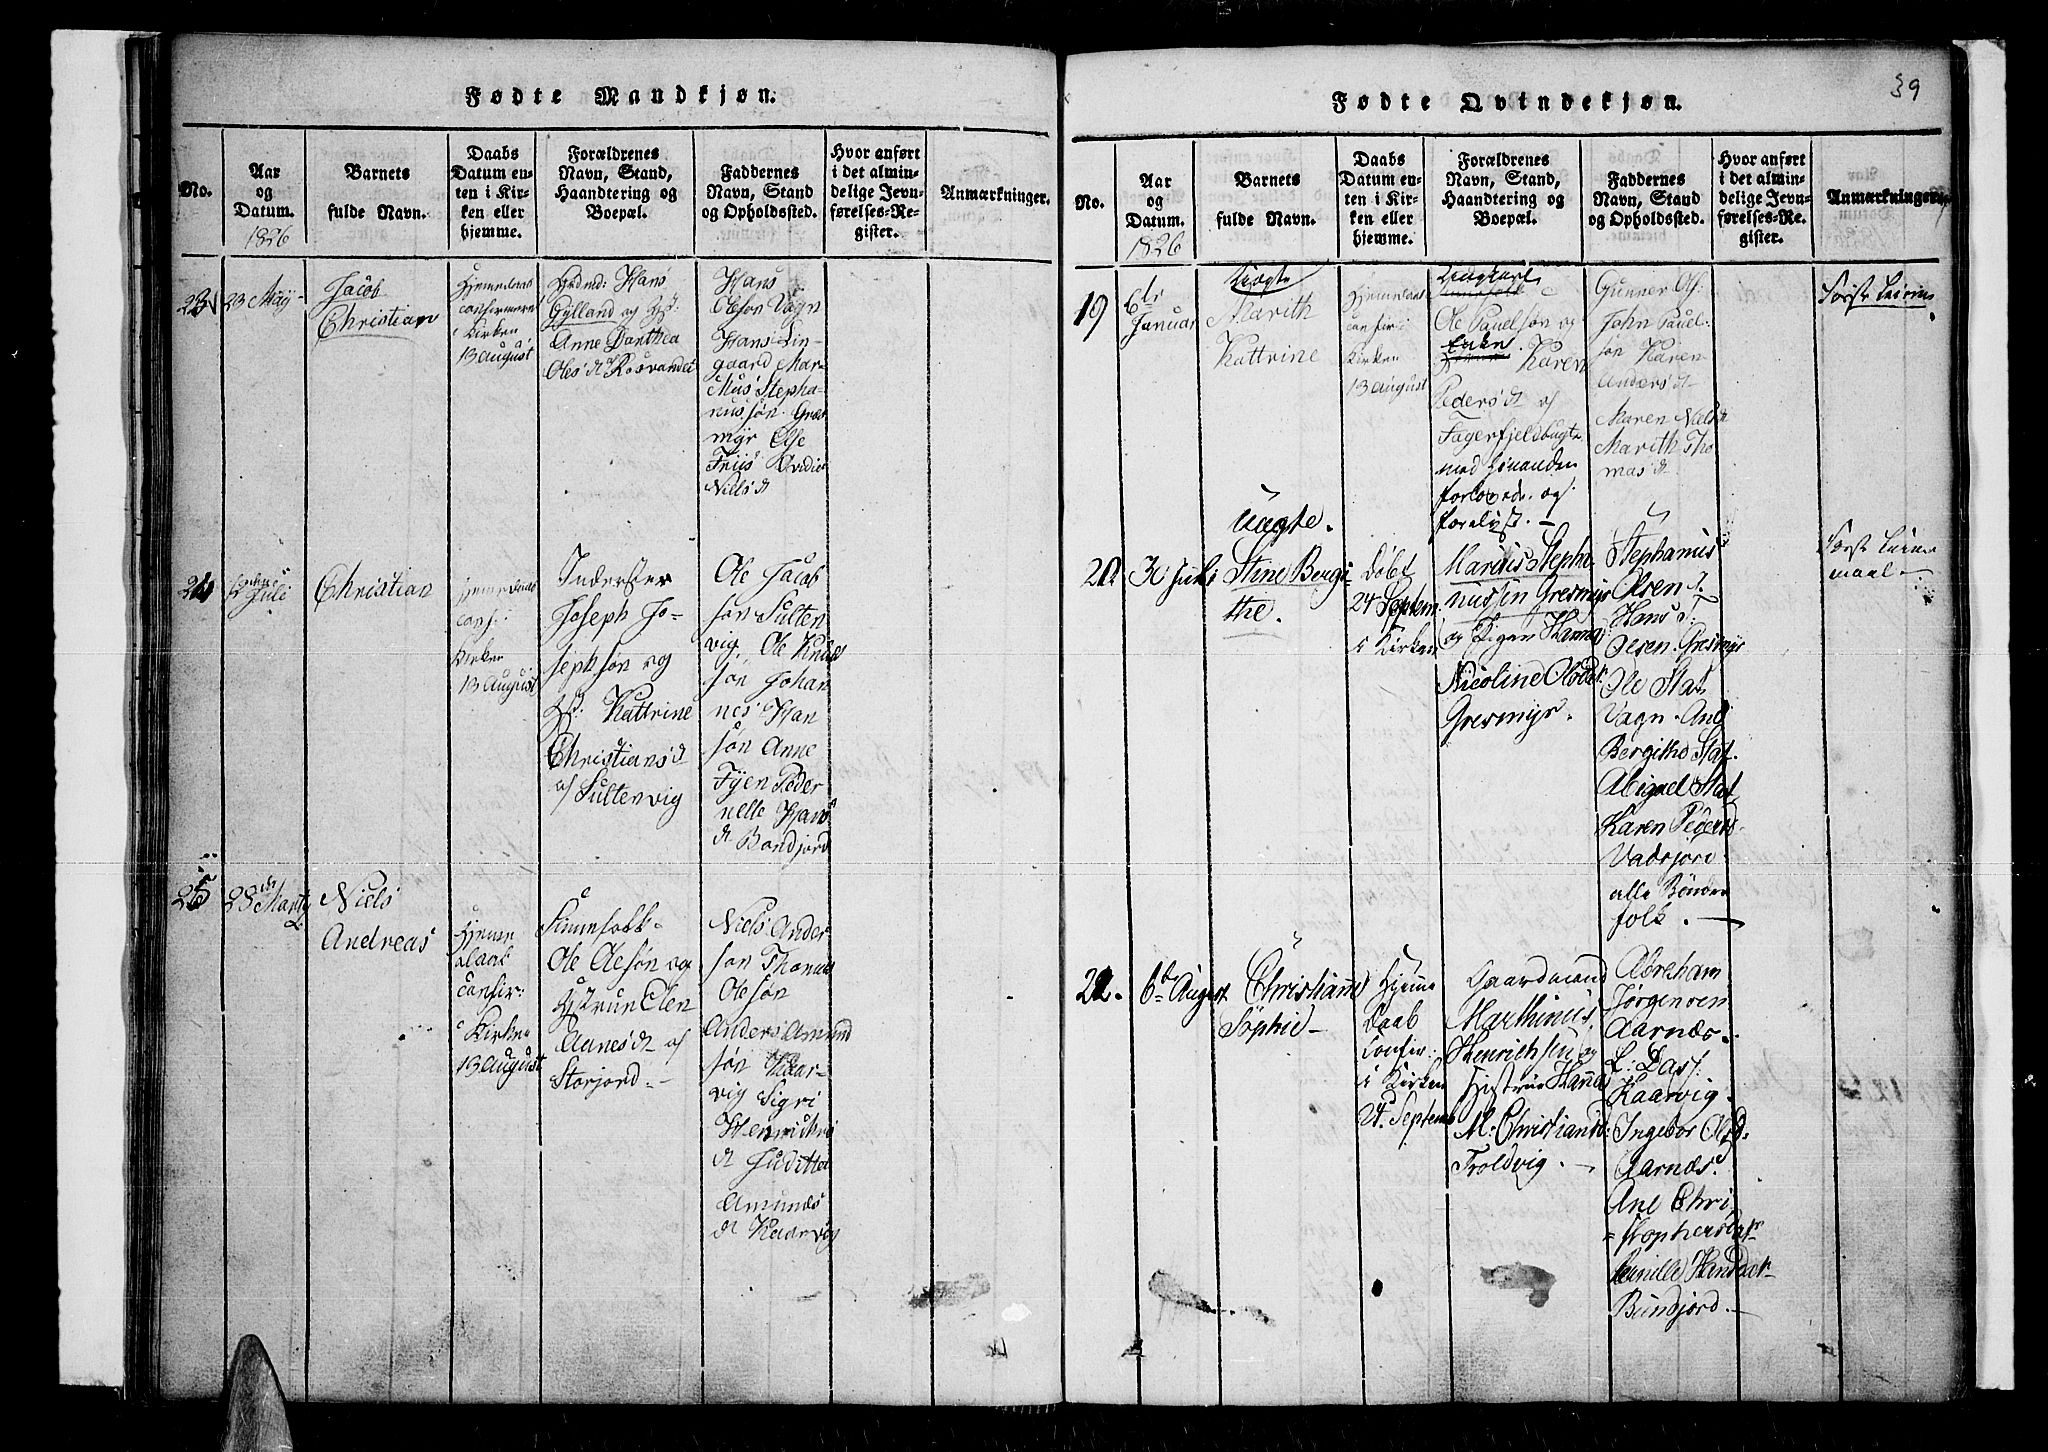 Fødte Mandkjøn.
No.
Aar
og
Datum.
1826
Barnets
fulde Navn.
Daabs
Datum en-
ten i Kir-
ken eller
hjemme.
Forældrenes
Navn, Stand,
Haandtering og
Boepæl.
Faddernes
Navn, Stand
og Opholdssted.
Hvor anført
i det almin-
delige Jevn-
førelses-Re-
gister.
Anmærkninger.
23
23 Maÿ
Jacob
Christian
Hjemedaab
confirmeret
i Kirken
13 August
Hans
Gÿlland og
Anne Dorthea
Oles dt Rosvandet
Hans
Oleson Vagn
Hans Lin-
gaard Mar-
kus Stepha-
nus søn Græs-
mÿr Else
Friis
Niels dt
24
Juli
Christian
Hjemmedaab
conf:
Kirken
13 August
Inderster
Joseph Jo-
seph søn og
Kattrine
Christians dt
af Sultenvig
Ole Jacob
søn Sulten
vig, Ole Knud
søn Johan
nes Han
søn Anne
Fÿen Peder
nelle Hans
dt Bondjord
25
Niels
Andreas
Hjeme
daab
confir:
i Kirken
13 August
Ole Olesøn og
Hustrue Elen
Aanes dt af
Storjord.
Niels Ander
søn Thomas
Olesøn
Anders Amund
søn Kaar-
vig Sigri
Henrichs
dt Juditte
Amunds
dt Kaarvig
39
Fødte Qvindekjøn.
No.
Aar
og
Datum.
1826
Barnets
fulde Navn.
Daabs
Datum en-
ten i Kir-
ken eller
hjemme.
Forældrenes
Navn, Stand,
Haandtering og
Boepæl.
Faddernes
Navn, Stand
og Opholdssted.
Hvor anført
i det almin-
delige Jevn-
førelses-Re-
gister.
Anmærkninger.
19
6te
Januar
Uægte
Marith
Kattrine
Hjemedaab
confir: i
Kirken
13 August
Ungkarl
Ole Paulsøn og
Enke Karen
Peders dt af
Fagerfjeldbugt
med hinanden
forlovede og
forelyst.
Gunner Ols
John Paul-
søn Karen
Anders dt
Maren Niels dt
Marith Tho
mas dt
Første
20
Juli
Uægte.
Stine Bergi
the.
Døbt
24 Septem
i Kirken
Marcus Stepha
nussen Græsmÿr
og Pigen Hanna
Nicoline
Græsmÿr.
Stephanus
Olsen
Hans
Olsen Græsmÿr
Ole
Vagn. Ane
Bergithe
Abigael
Karen Peders
Vadsjord
alle Bønder
folk.
Første Leier
maal
22.
6te August
Christianne
Sophie
Hjeme
Daab
confir:
i Kirken
24. Septemb
Gaardmand
Marthinus
Henrichsen og
Hustrue Hanna
M. Christiansd:
Troldvig.
Abraham
Jørgensen
Aarnæs.
L. Lars:
Kaarvig.
Ingebor
Aarnæs
Ane Chri
stophersdatr
Pernille Hansdat
Bundjord.